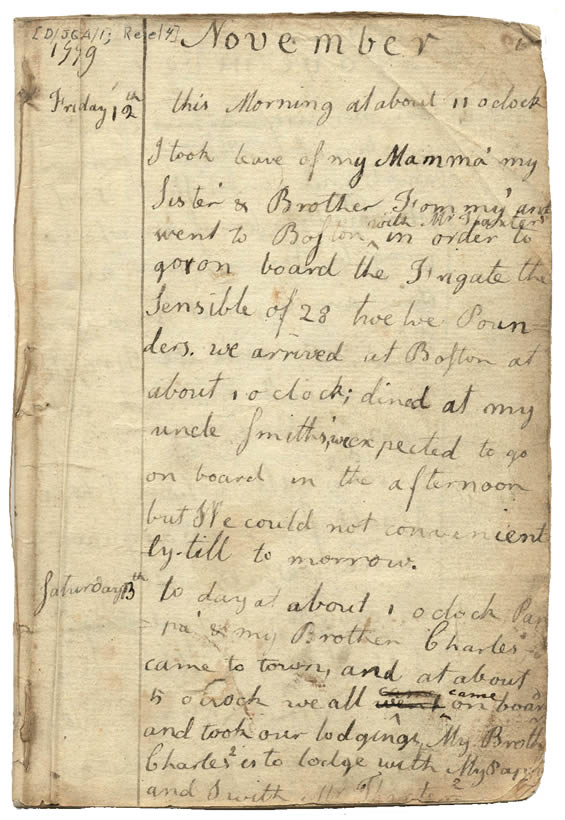 [D/JQA/1; Reel 4]
November
1779
Friday 12th this Morning at about 11 o clock
I took leave of my Mamma my
Sister & Brother Tommy and
went to Boston with Mr Thaxter in order to
go on board the Frigate the
Sensible of 28 twelve Poun=
ders. we arrived at Boston at
about 1 o clock; dined at my
uncle Smiths, we expected to go
on board in the afternoon
but We could not convenient
ly till to morrow.
Saturday 13th to day at about 1 o clock Pap
=pa & my Brother Charles
came to town, and at about
5 o clock we all came went came on board
and took our lodgings My Broth
Charles 2 is to lodge with My Papa
and I with Mr Thaxter 2